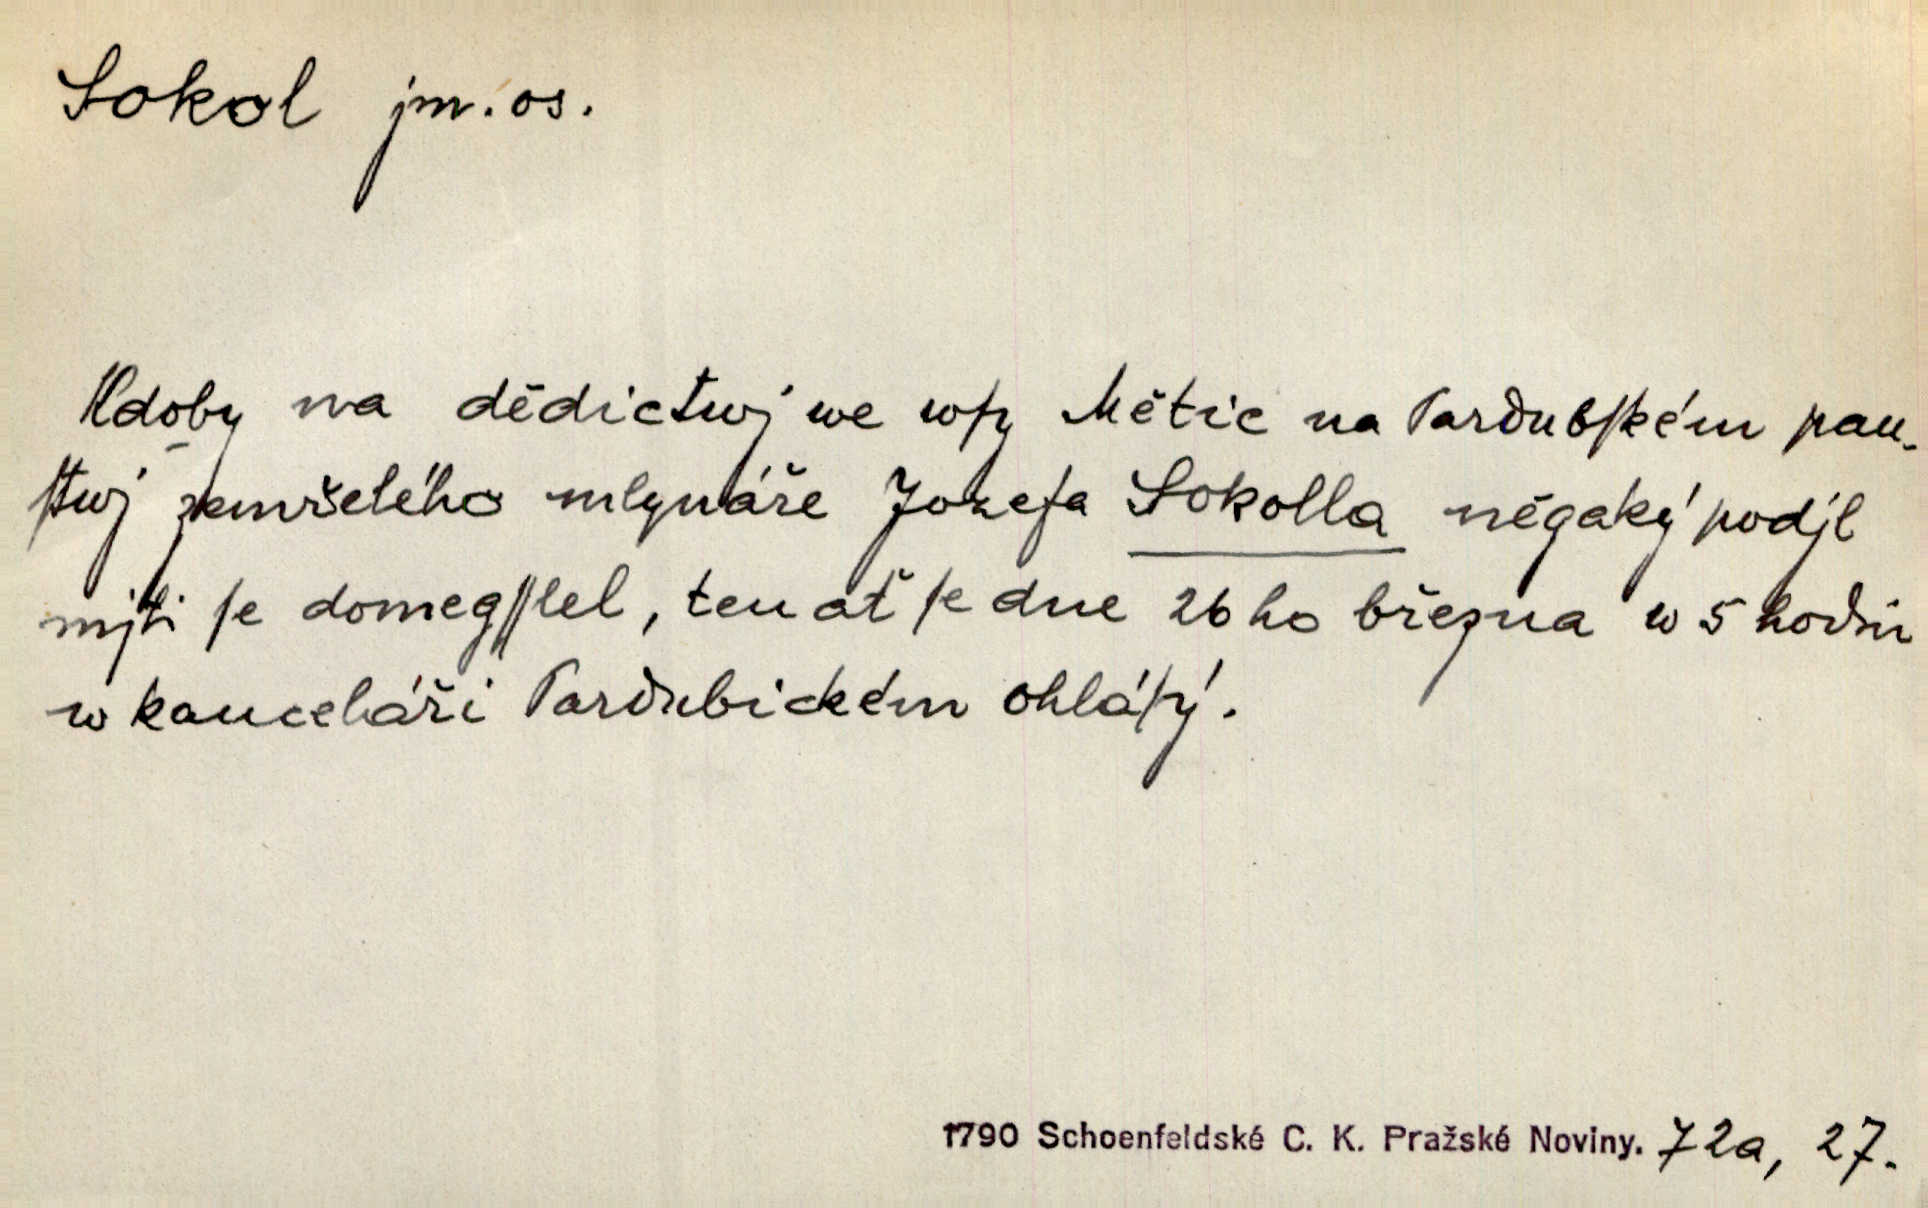 Sokol jm. os.
Kdoby na dědictwj we wſy Mětic na Pardubſkém pan-
ſtwj zemřelého mlynáře Jozefa Sokolla něgaký podjl
mjti ſe domegſſlel, ten ať ſe dne 26ho března w 5 hodin
w kanceláři Pardubickém ohláſý.
1790 Schoenfeldské C. K. Pražské Noviny. 72a, 27.